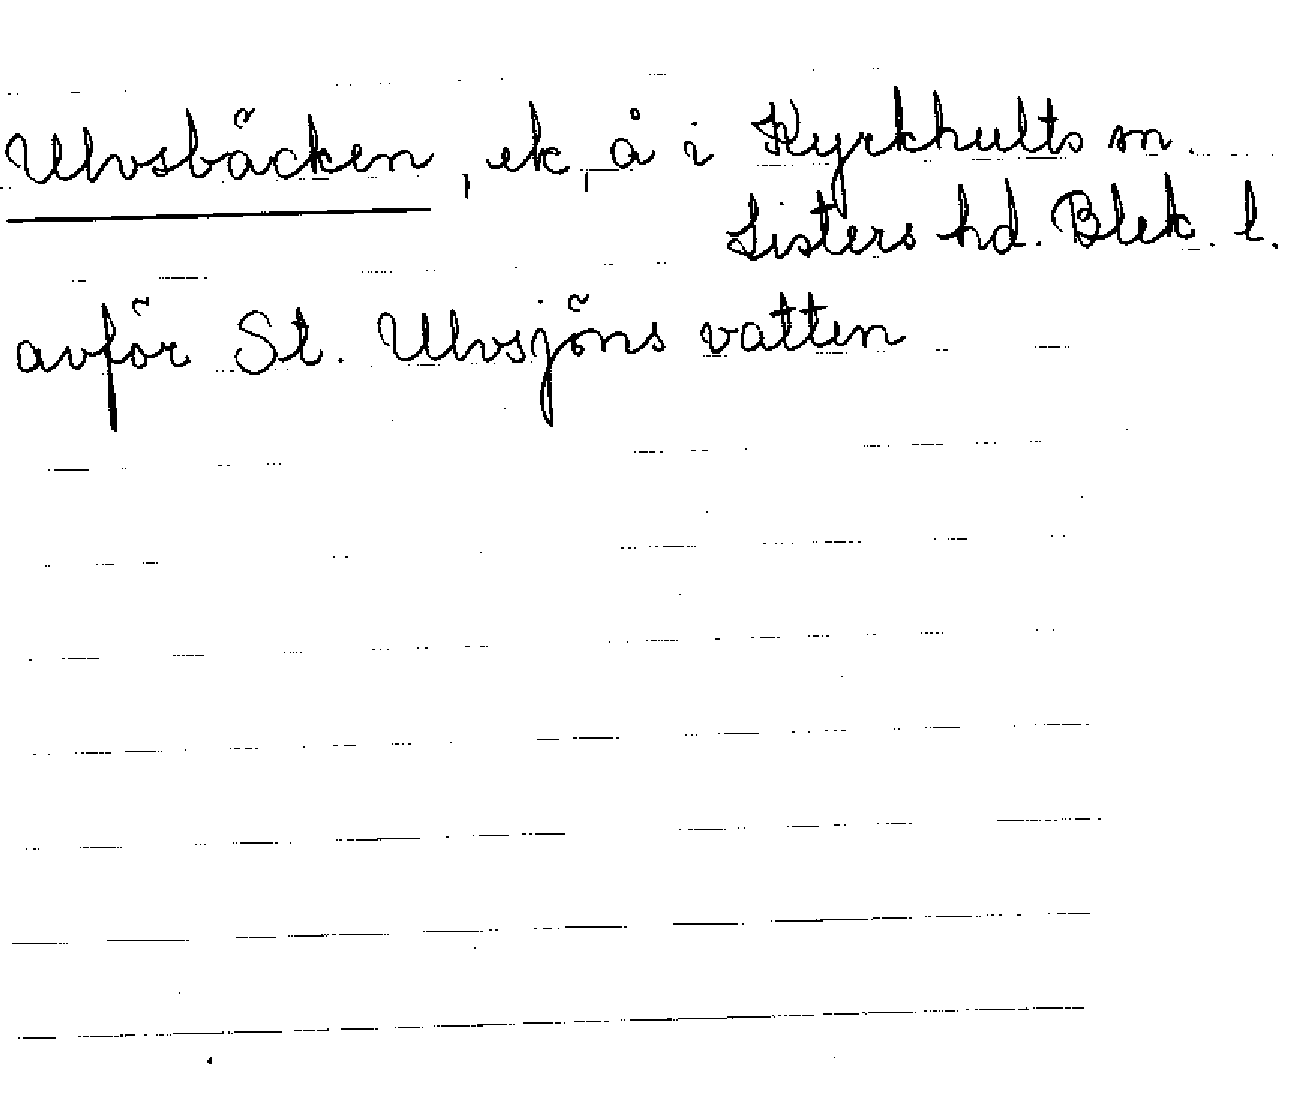 Ulvsbäcken, ek, å i Kyrkhults sn.
Listers hd. Blek. l.
avför St. Ulvsjöns vatten